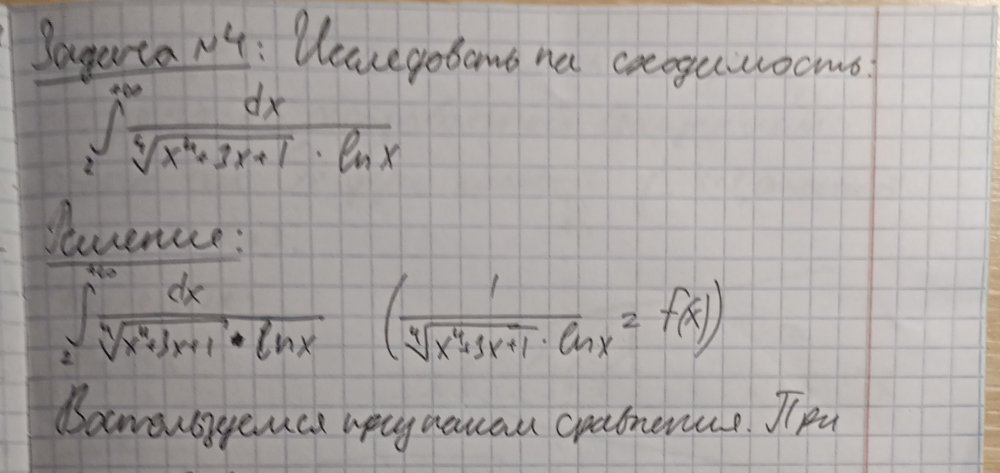 Задача №4: Исследовать на сходимость:
∫₂^{+∞} dx / (⁴√(x⁴+3x+1) · ln x)
Решение:
∫₂^{+∞} dx / (⁴√(x⁴+3x+1) · ln x) (1 / (⁴√(x⁴+3x+1) · ln x) = f(x))
Воспользуемся признаком сравнения. При